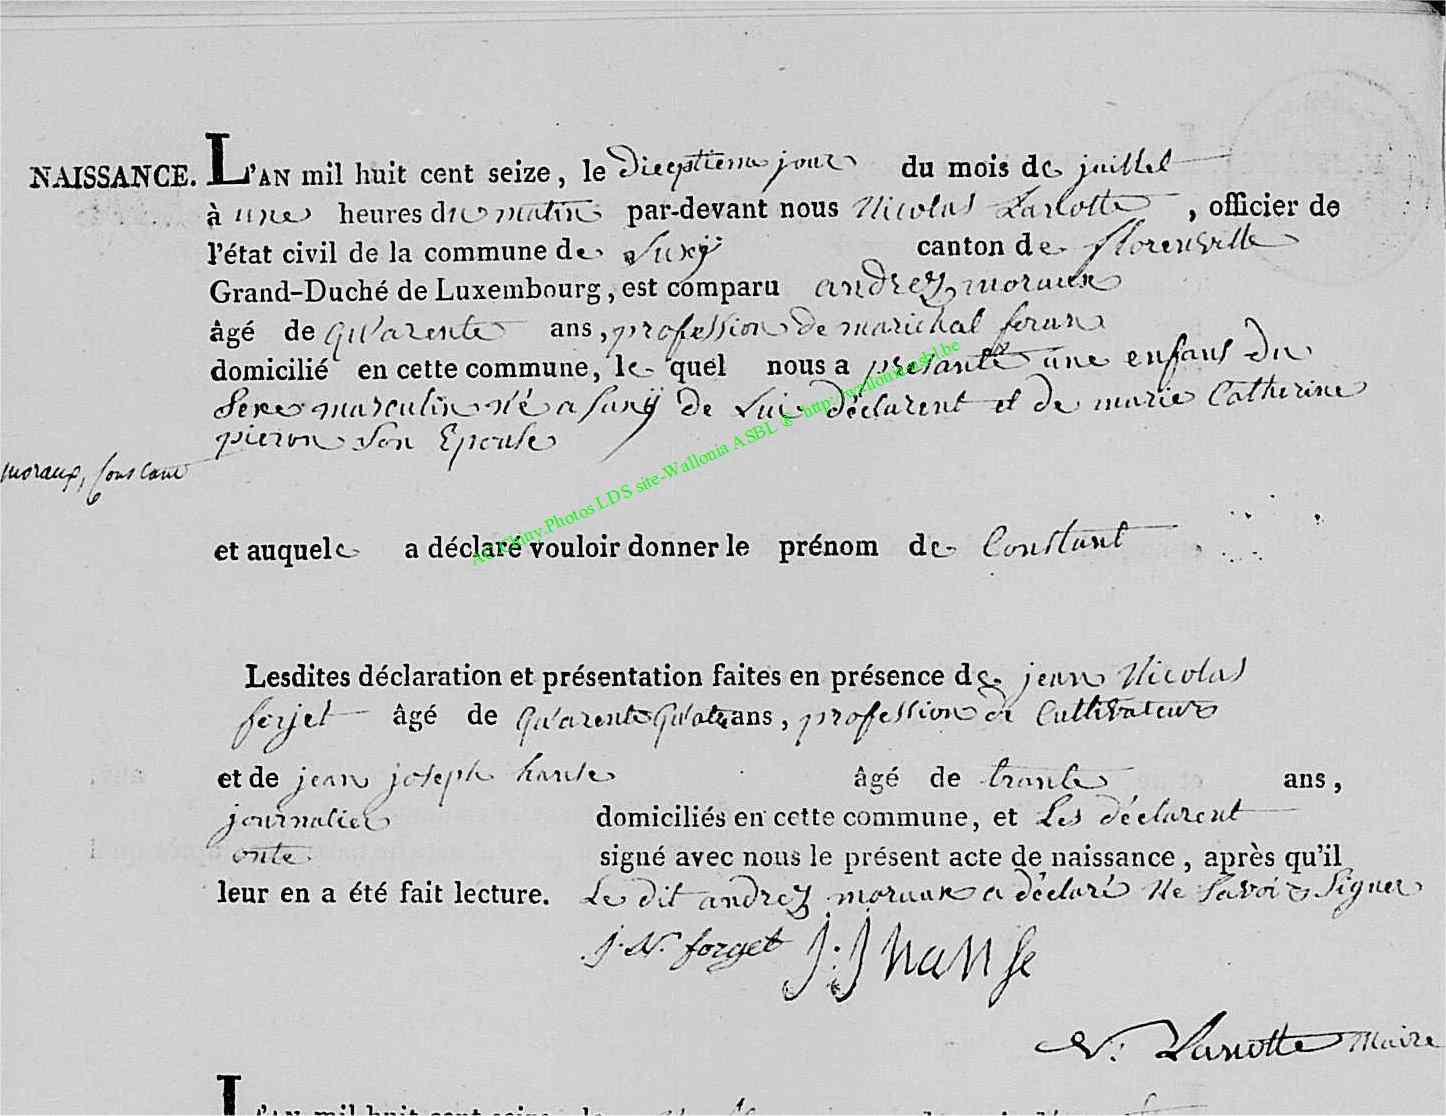 NAISSANCE. L'AN mil huit cent seize, le dieeptieme jour du mois de juillet
à une heures du matin par-devant nous Nicolas Larlotte, officier de
l'état civil de la commune de Suxÿ canton de florenville
Grand-Duché de Luxembourg, est comparu andrez moraux
âgé de qu'arente ans, profession de marichal feran
domicilié en cette commune, le quel nous a presanté une enfans du
Sexe masculin né a Suxÿ de Lui déclarent et de marie Catherine
pieron Son Epouse
moraux, Constant
et auquele a déclaré vouloir donner le prénom de Constant
At Chiny.Photos LDS site-Wallonia ASBL © http://wallonia-asbl.be
Lesdites déclaration et présentation faites en présence de jean Nicolas
forjet âgé de qu'arente qu'atre ans, profession de Cultivateur
et de jean joseph hanse âgé de trante ans,
journalier domiciliés en cette commune, et Les déclarent
onte signé avec nous le présent acte de naissance, après qu'il
leur en a été fait lecture. Le dit andrez moraux a déclaré Ne Savoir Signer
j. N. forget J: J hanse
N: Larlotte Maire
L'AN mil huit cent seize, le